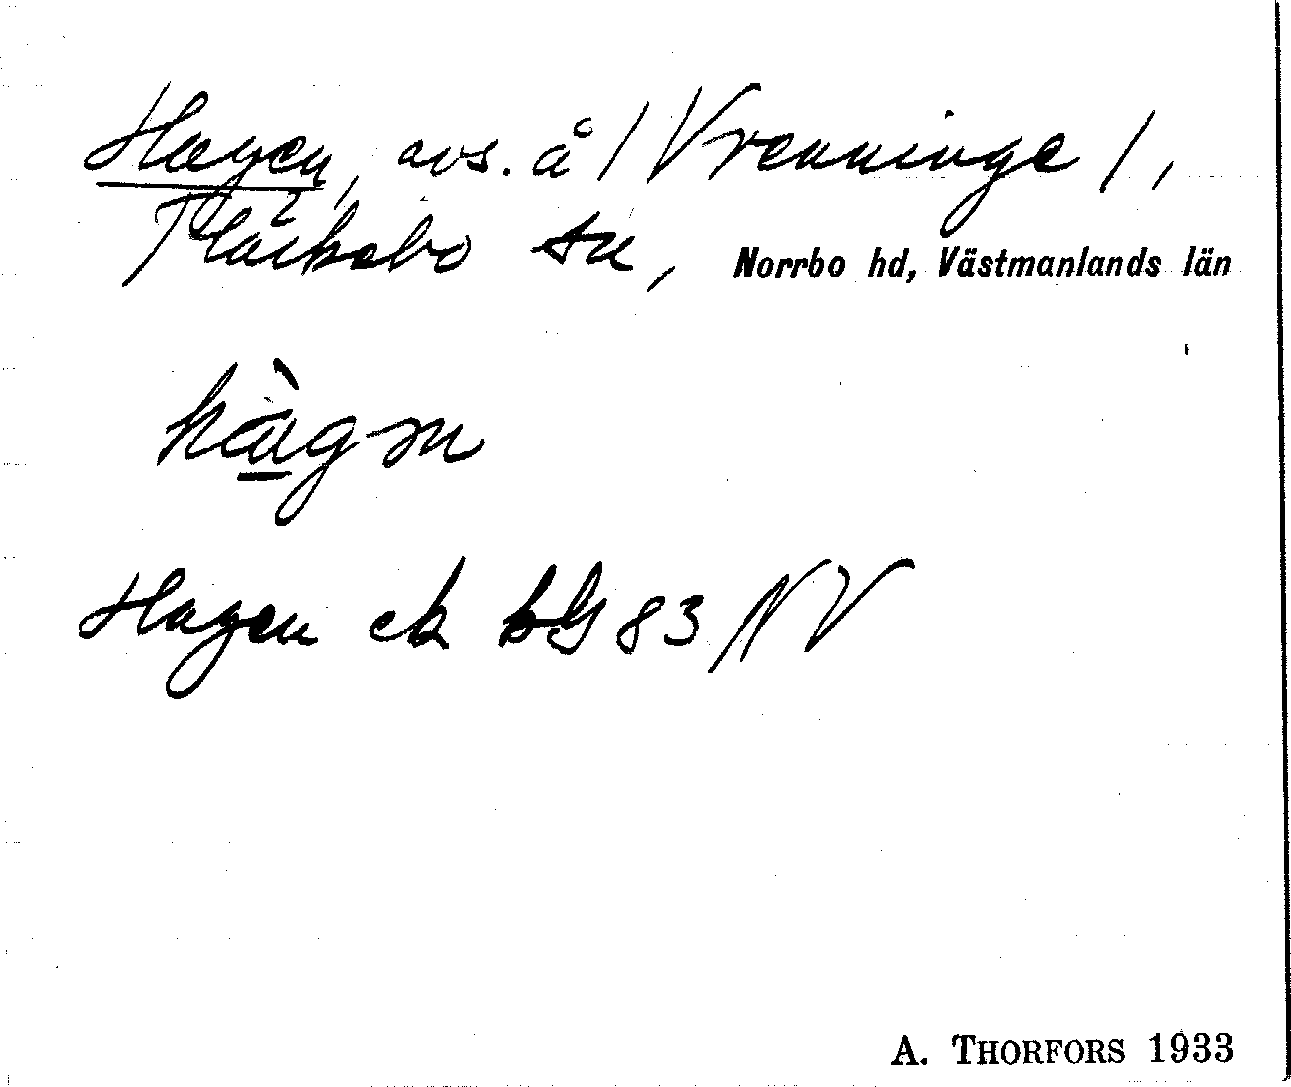 Hagen, avs. å / Vrenninge /,
Fläckebo sn, Norrbo hd, Västmanlands län
hàgɷn
Hagen ek bG 83 NV
A. THORFORS 1933